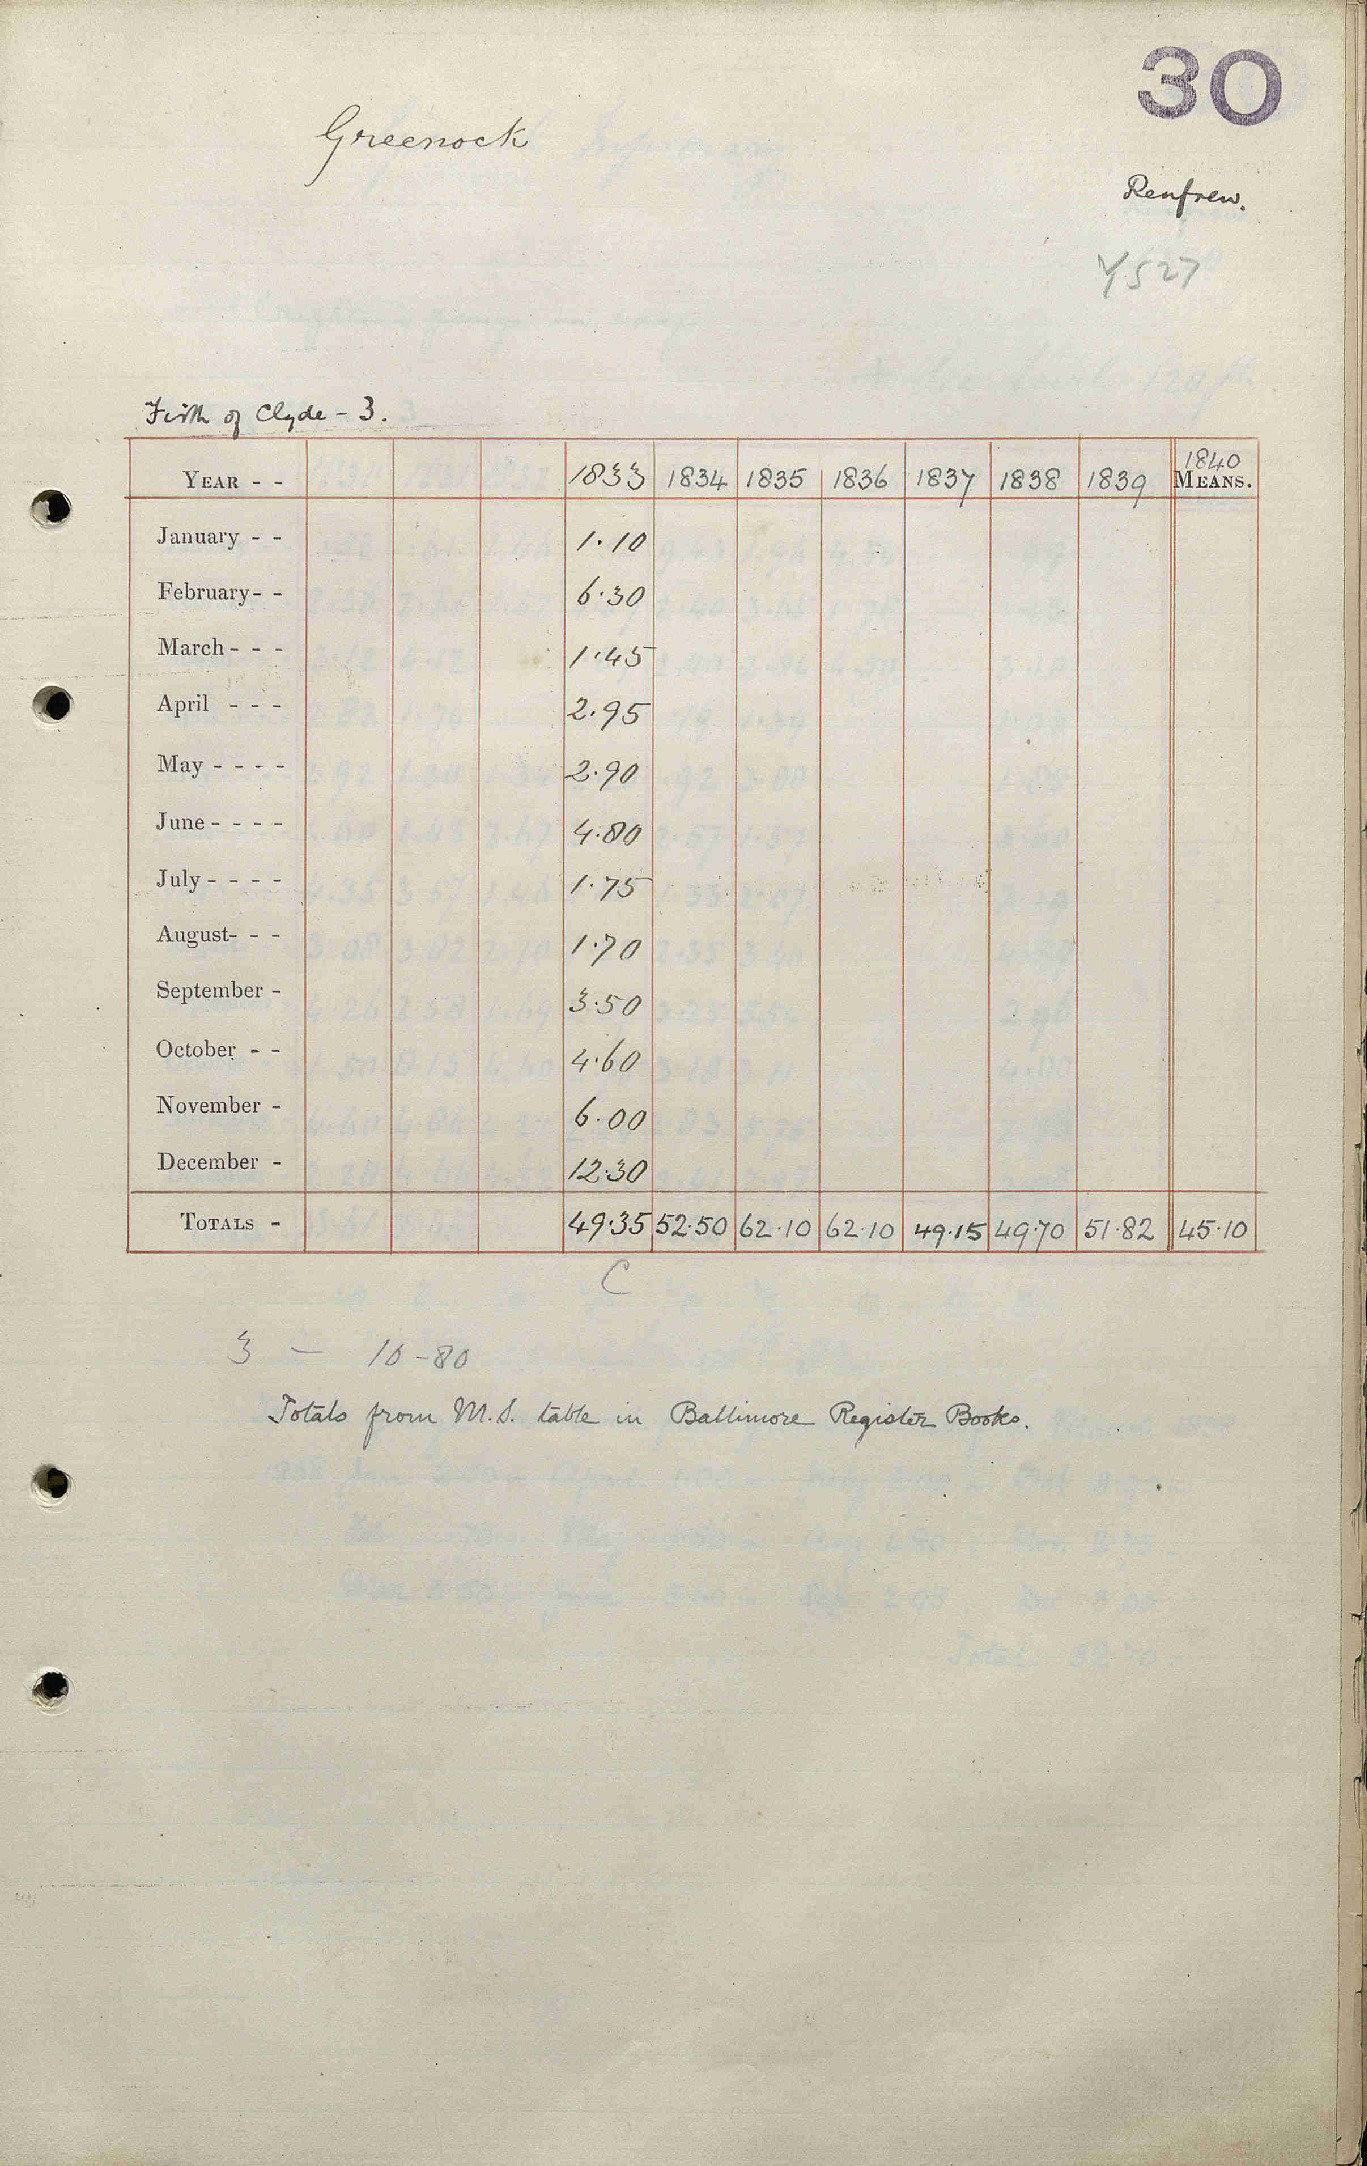 30
Greenock
Renfrew.
Y527
Firth of Clyde - 3.
YEAR - - 1833 1834 1835 1836 1837 1838 1839 1840 MEANS.
January - - 1.10
February - - 6.30
March - - - 1.45
April - - - 2.95
May - - - - 2.90
June - - - - 4.80
July - - - - 1.75
August - - - 1.70
September - 3.50
October - - 4.60
November - 6.00
December - 12.30
TOTALS - 49.35 52.50 62.10 62.10 49.15 49.70 51.82 45.10
C
3 — 10-80
Totals from M.S. table in Baltimore Register Books.